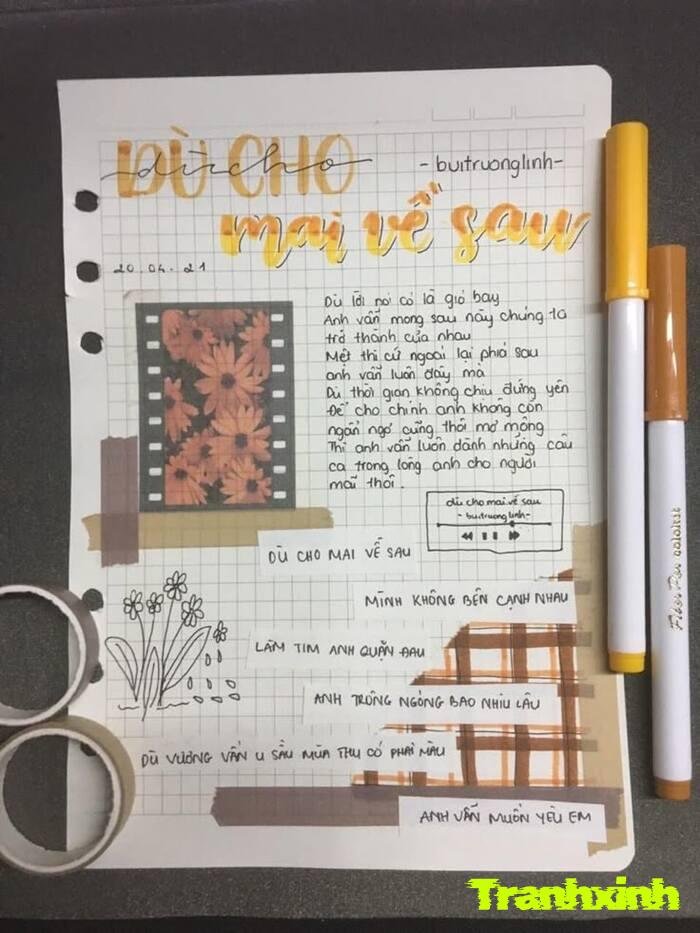 DÙ CHO
dù cho
-buitruonglinh-
mai về sau
20.04.21
Dù lời nói có là gió bay
Anh vẫn mong sau này chúng ta
trở thành của nhau
Mệt thì cứ ngoái lại phía sau
anh vẫn luôn đây mà
Dù thời gian không chịu đứng yên
Để cho chính anh không còn
ngẩn ngơ cũng thôi mơ mộng
Thì anh vẫn luôn dành những câu
ca trong lòng anh cho người
mãi thôi.
dù cho mai về sau
-buitruonglinh-
DÙ CHO MAI VỀ SAU
MÌNH KHÔNG BÊN CẠNH NHAU
LÀM TIM ANH QUẶN ĐAU
ANH TRÔNG NGÓNG BAO NHIU LÂU
DÙ VƯƠNG VẤN U SẦU MÙA THU CÓ PHAI MÀU
ANH VẪN MUỐN YÊU EM
Fiber Pen colokit
Tranhxinh